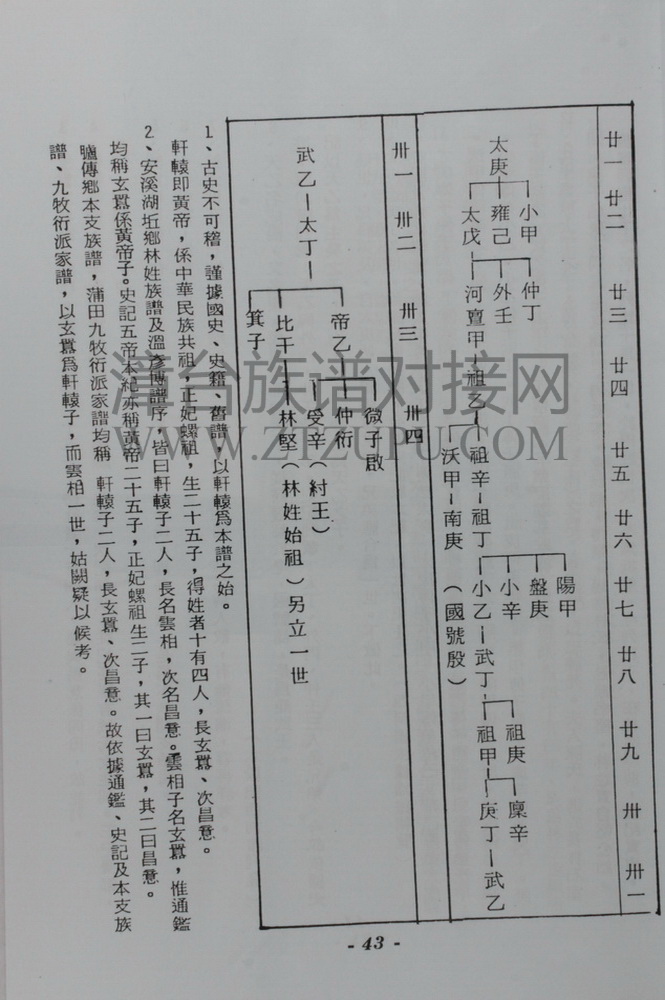 廿一 廿二 廿三 廿四 廿五 廿六 廿七 廿八 廿九 卅 卅一
小甲 仲丁 陽甲 祖庚 廩辛
太庚 雍己 外壬 盤庚
太戊 河亶甲 祖乙 祖辛 祖丁 小辛 祖甲 庚丁 武乙
小乙 武丁
沃甲 南庚 (國號殷)
卅一 卅二 卅三 卅四
微子啟
帝乙 仲衍
武乙 太丁 受辛(紂王)
比干 林堅(林姓始祖)另立一世
箕子
1、古史不可稽,謹據國史、史籍、舊譜,以軒轅爲本譜之始。
軒轅即黃帝,係中華民族共祖,正妃螺祖,生二十五子,得姓者十有四人,長玄囂、次昌意。
2、安溪湖坵鄉林姓族譜及溫彥博譜序,皆曰軒轅子二人,長名雲相,次名昌意。雲相子名玄囂,惟通鑑
均稱玄囂係黃帝子。史記五帝本紀亦稱黃帝二十五子,正妃螺祖生二子,其一曰玄囂,其二曰昌意。
驢傳鄉本支族譜,蒲田九牧衍派家譜均稱 軒轅子二人,長玄囂、次昌意。故依據通鑑、史記及本支族
譜、九牧衍派家譜,以玄囂爲軒轅子,而雲相一世,姑闕疑以候考。
- 43 -
漳台族谱对接网
WWW.ZTZUPU.COM